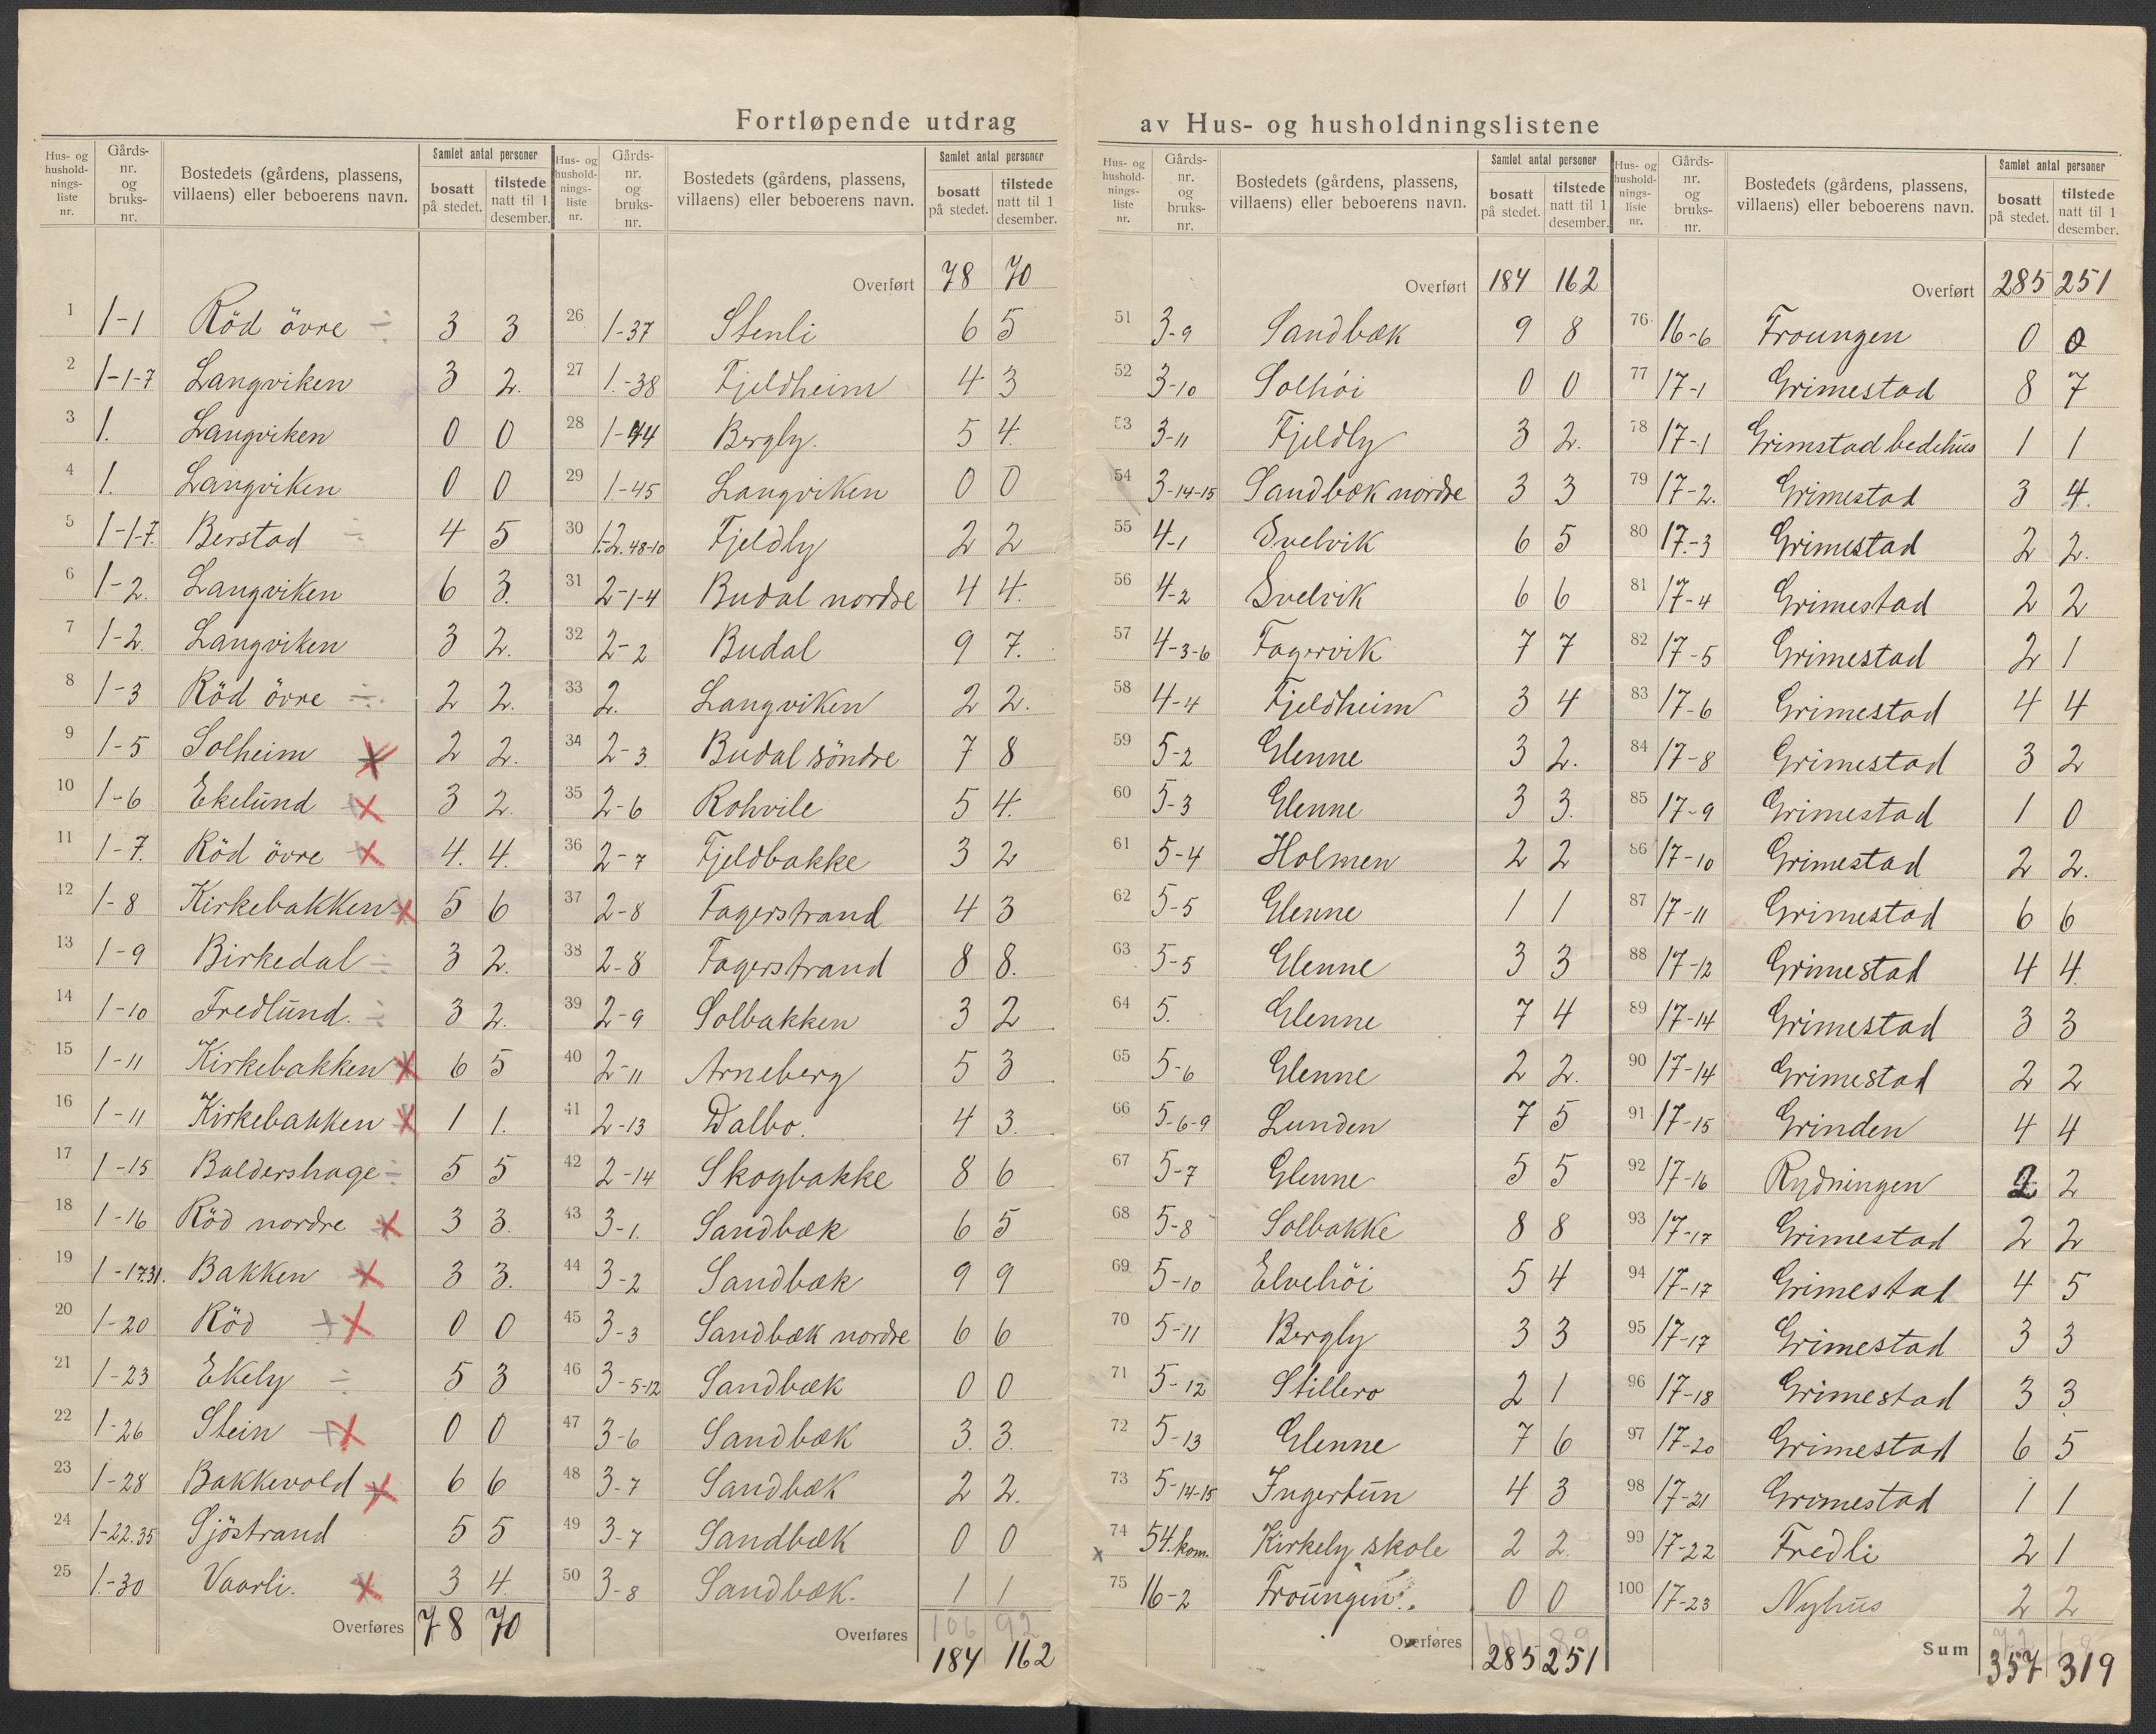 Fortløpende utdrag av Hus- og husholdningslistene
Hus- og husholdnings-liste nr. | Gårds-nr. og bruks-nr. | Bostedets (gårdens, plassens, villaens) eller beboerens navn. | Samlet antal personer bosatt på stedet. | tilstede natt til 1 desember.
1 1-1 Röd övre ÷ 3 3
2 1-1-7 Langviken 3 2.
3 1. Langviken 0 0
4 1. Langviken 0 0
5 1-1-7. Berstad ÷ 4 5
6 1-2. Langviken 6 3.
7 1-2. Langviken 3 2.
8 1-3 Röd övre ÷ 2 2.
9 1-5 Solheim x 2 2.
10 1-6 Ekelund x 3 2.
11 1-7. Röd övre x 4. 4.
12 1-8 Kirkebakken x 5 6
13 1-9 Birkedal ÷ 3 2.
14 1-10 Fredlund. ÷ 3 2.
15 1-11 Kirkebakken x 6 5
16 1-11 Kirkebakken x 1 1.
17 1-15 Baldershage ÷ 5 5
18 1-16 Röd nordre x 3 3.
19 1-17.31. Bakken x 3 3.
20 1-20 Röd + x 0 0
21 1-23 Ekely ÷ 5 3
22 1-26 Stein + x 0 0
23 1-28 Bakkevold x 6 6
24 1-22.35 Sjöstrand 5 5
25 1.-30 Vaarli. x 3 4.
Overføres 78 70
Hus- og husholdnings-liste nr. | Gårds-nr. og bruks-nr. | Bostedets (gårdens, plassens, villaens) eller beboerens navn. | Samlet antal personer bosatt på stedet. | tilstede natt til 1 desember.
Overført 78 70
26 1-37 Stenli 6 5
27 1.-38 Fjeldheim 4 3
28 1-44 Bergly. 5 4.
29 1-45 Langviken 0 0
30 1-2.48-10 Fjeldly 2 2
31 2-1-4 Budal nordre 4 4.
32 2-2 Budal 9 7.
33 2. Langviken 2 2.
34 2-3. Budal söndre 7 8
35 2-6 Rohvile 5 4.
36 2-7 Fjeldbakke 3 2
37 2-8 Fagerstrand 4 3
38 2-8 Fagerstrand 8 8.
39 2-9 Solbakken 3 2
40 2-11 Arneberg 5 3
41 2-13 Dalbo. 4 3.
42 2-14 Skogbakke 8 6
43 3-1. Sandbæk 6 5
44 3-2 Sandbæk 9 9
45 3-3 Sandbæk nordre 6 6
46 3-5-12 Sandbæk 0 0
47 3-6 Sandbæk 3. 3.
48 3-7 Sandbæk 2 2.
49 3-7 Sandbæk 0 0
50 3-8 Sandbæk. 1 1
106 92
Overføres 184 162
Hus- og husholdnings-liste nr. | Gårds-nr. og bruks-nr. | Bostedets (gårdens, plassens, villaens) eller beboerens navn. | Samlet antal personer bosatt på stedet. | tilstede natt til 1 desember.
Overført 184 162
51 3-9 Sandbæk 9 8
52 3-10 Solhöi 0 0
53 3-11 Fjeldly 3 2.
54 3-14-15 Sandbæk nordre 3 3
55 4-1 Svelvik 6 5
56 4-2 Svelvik 6 6
57 4-3-6 Fagervik 7 7
58 4-4 Fjeldheim 3 4
59 5-2 Glenne 3 2.
60 5-3 Glenne 3 3.
61 5-4 Holmen 2 2
62 5-5 Glenne 1 1
63 5-5 Glenne 3 3
64 5. Glenne 7 4
65 5-6 Glenne 2 2.
66 5-6-9 Lunden 7 5
67 5-7 Glenne 5 5
68 5-8 Solbakke 8 8
69 5-10 Elvehöi 5 4
70 5-11 Bergly 3 3
71 5-12 Stillero 2 1
72 5-13 Glenne 7 6
73 5-14-15 Ingertun 4 3
x 74 54. kom. Kirkely skole 2 2.
75 16-2 Froungen. 0 0
101 89
Overføres 285 251
Hus- og husholdnings-liste nr. | Gårds-nr. og bruks-nr. | Bostedets (gårdens, plassens, villaens) eller beboerens navn. | Samlet antal personer bosatt på stedet. | tilstede natt til 1 desember.
Overført 285 251
76 16-6 Froungen 0 0
77 17-1 Grimestad 8 7
78 17-1 Grimstad bedehus 1 1
79 17-2. Grimestad 3 4.
80 17.-3 Grimestad 2 2.
81 17-4 Grimestad 2 2
82 17-5 Grimestad 2 1
83 17-6 Grimestad 4 4
84 17-8 Grimestad 3 2
85 17-9 Grimestad 1 0
86 17-10 Grimestad 2 2.
87 17-11 Grimestad 6 6
88 17-12 Grimestad 4 4.
89 17-14 Grimestad 3 3
90 17-14 Grimestad 2 2
91 17-15 Grinden 4 4
92 17-16 Rydningen 2 2
93 17-17 Grimestad 2 2
94 17-17 Grimestad 4 5
95 17-17 Grimestad 3 3
96 17-18 Grimestad 3 3
97 17-20 Grimestad 6 5
98 17-21 Grimestad 1 1
99 17-22 Fredli 2 1
100 17-23 Nyhus 2 2
72 68
Sum 357 319